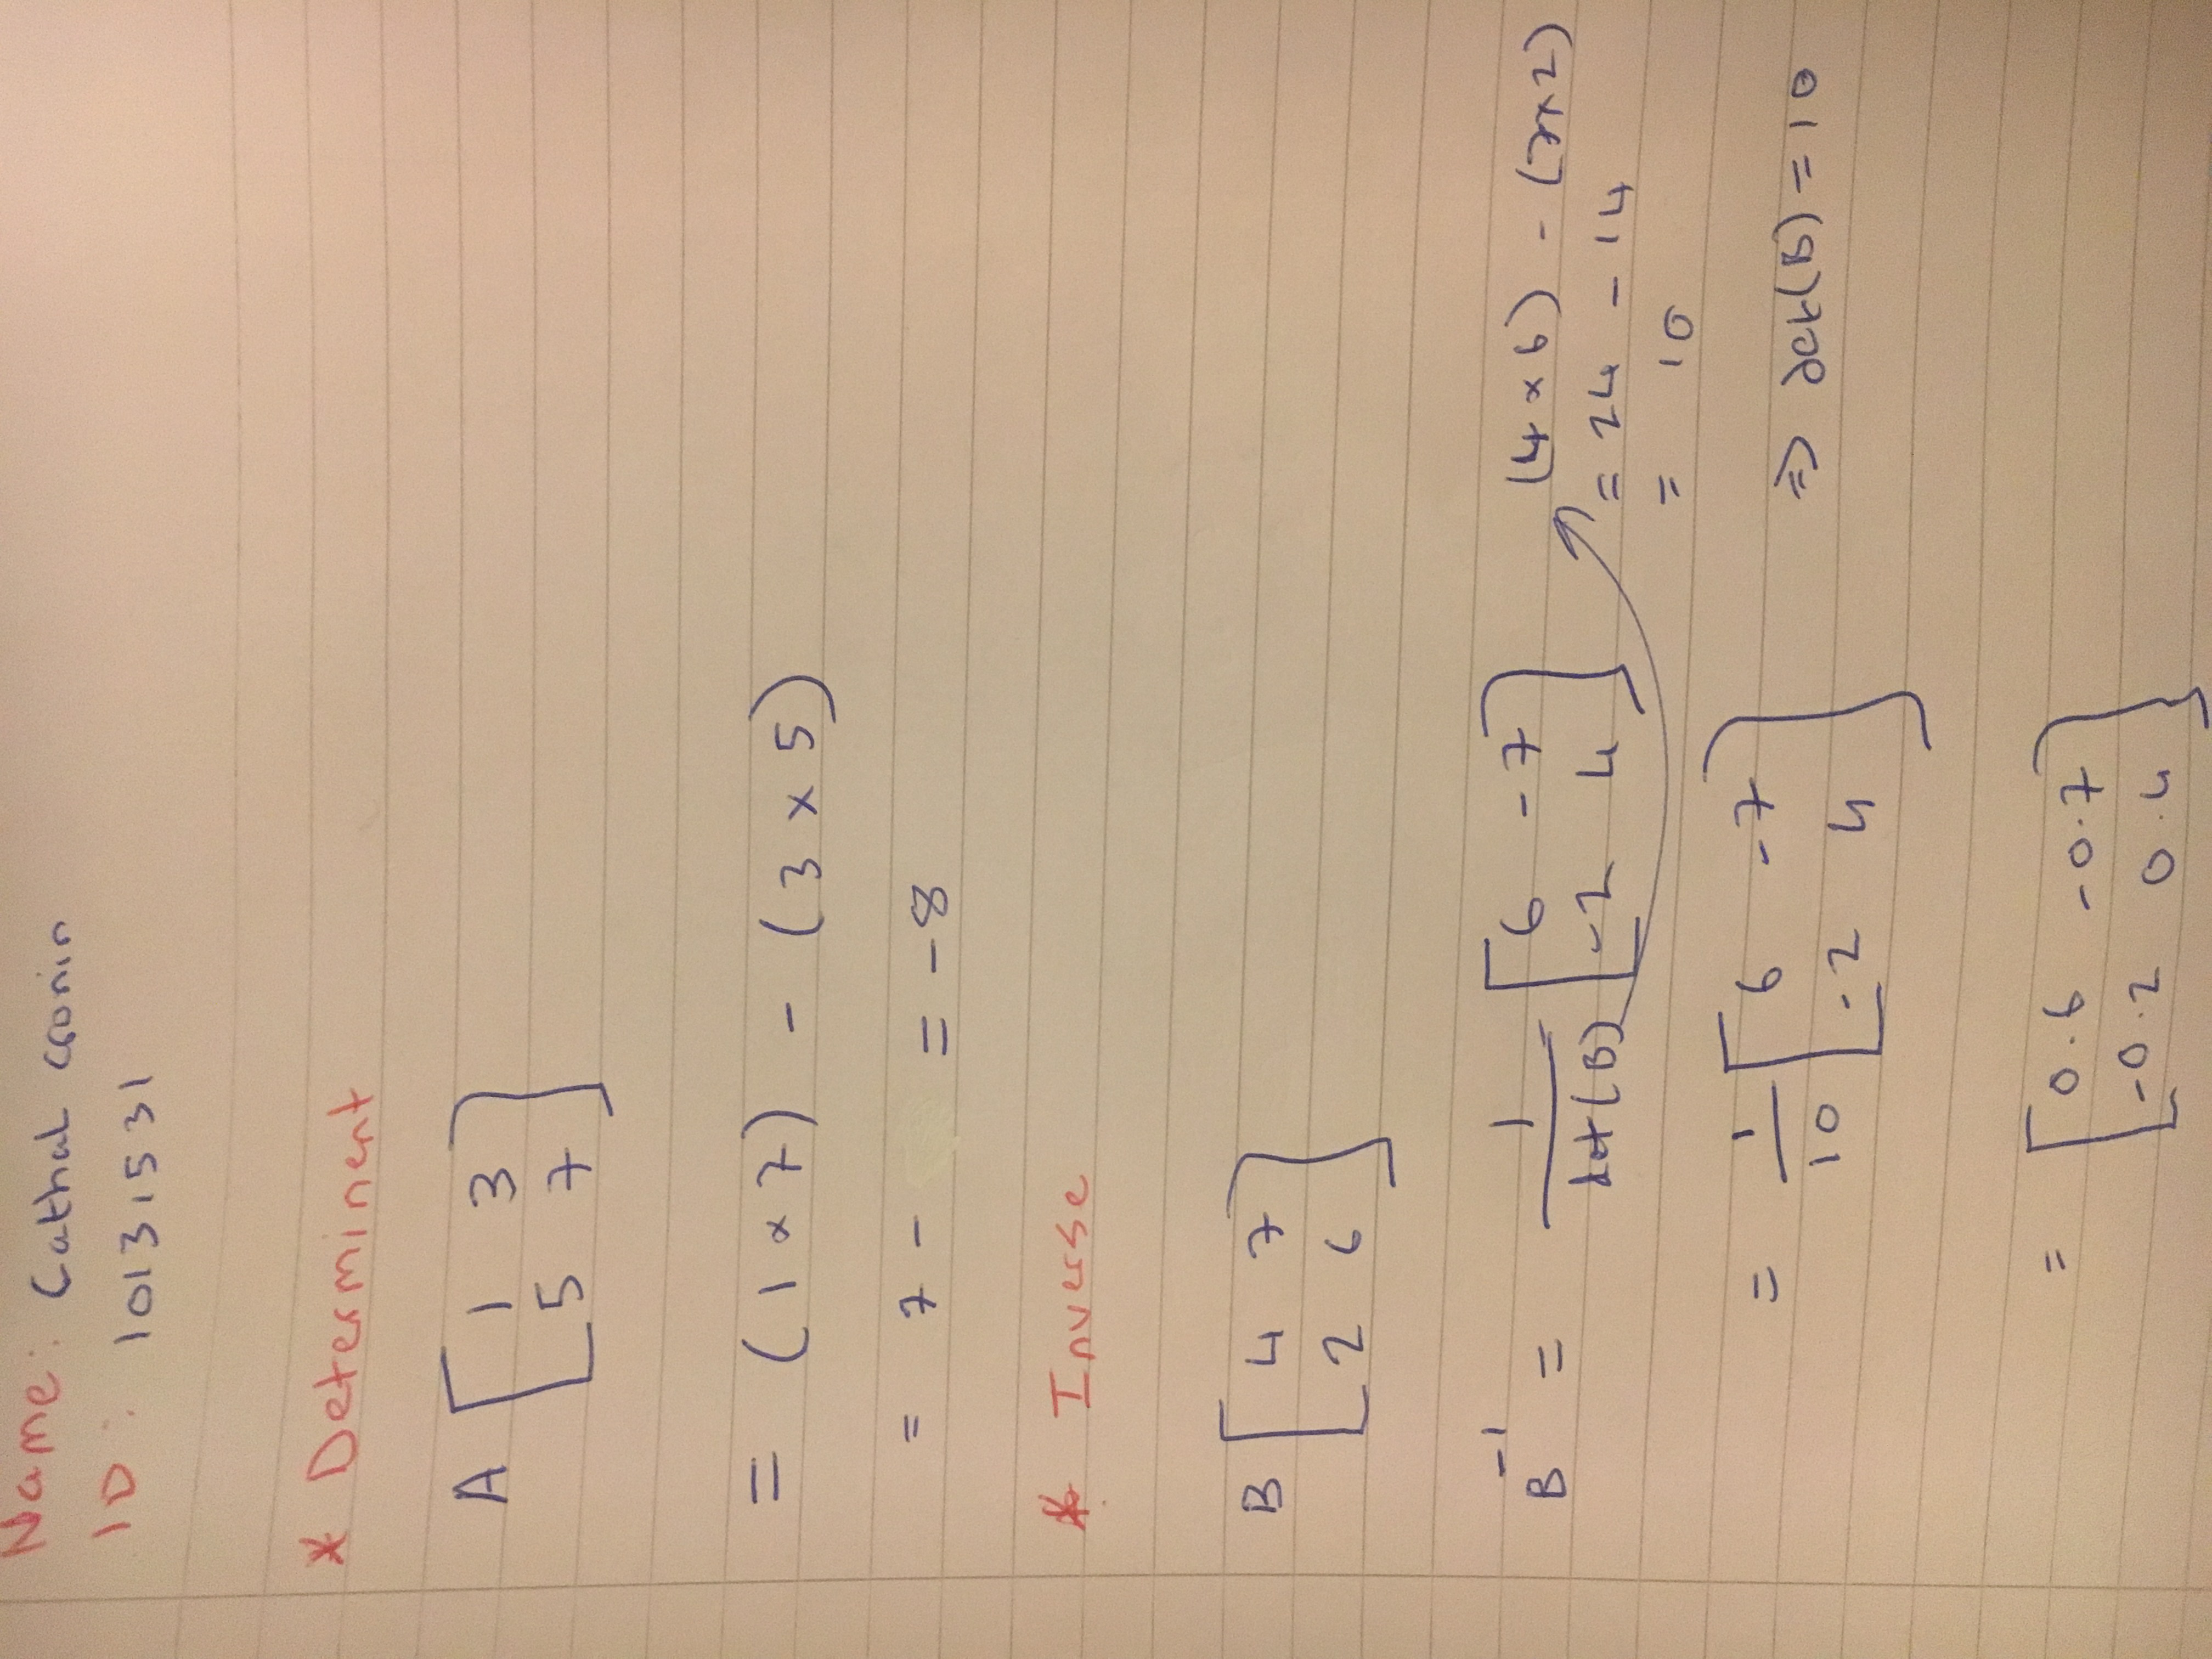 Name: Cathal Cronin
ID: 10131531
* Determinent
A [ 1 3
5 7 ]
= (1 x 7) - (3 x 5)
= 7 - = -8
* Inverse
B [ 4 7
2 6 ]
B⁻¹ = 1/det(B) [ 6 -7
-2 4 ]
(4 x 6) - (7x2)
= 24 - 14
= 10
= 1/10 [ 6 -7
-2 4 ]
=> det(B) = 10
= [ 0.6 -0.7
-0.2 0.4 ]